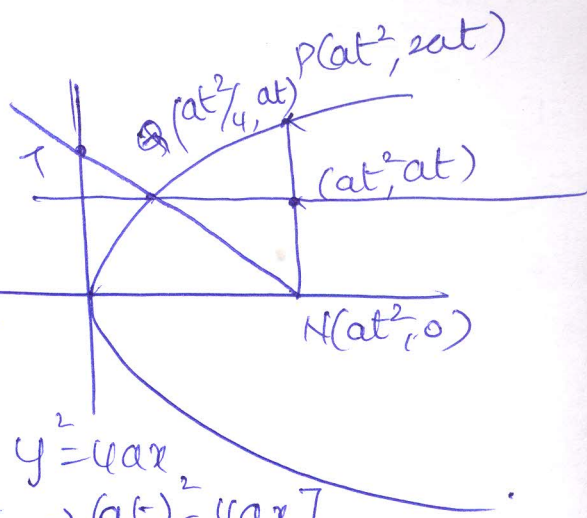 P(at², 2at)
Q(at²/4, at)
T
(at², at)
N(at², 0)
y² = 4ax
(at)² = 4ax]